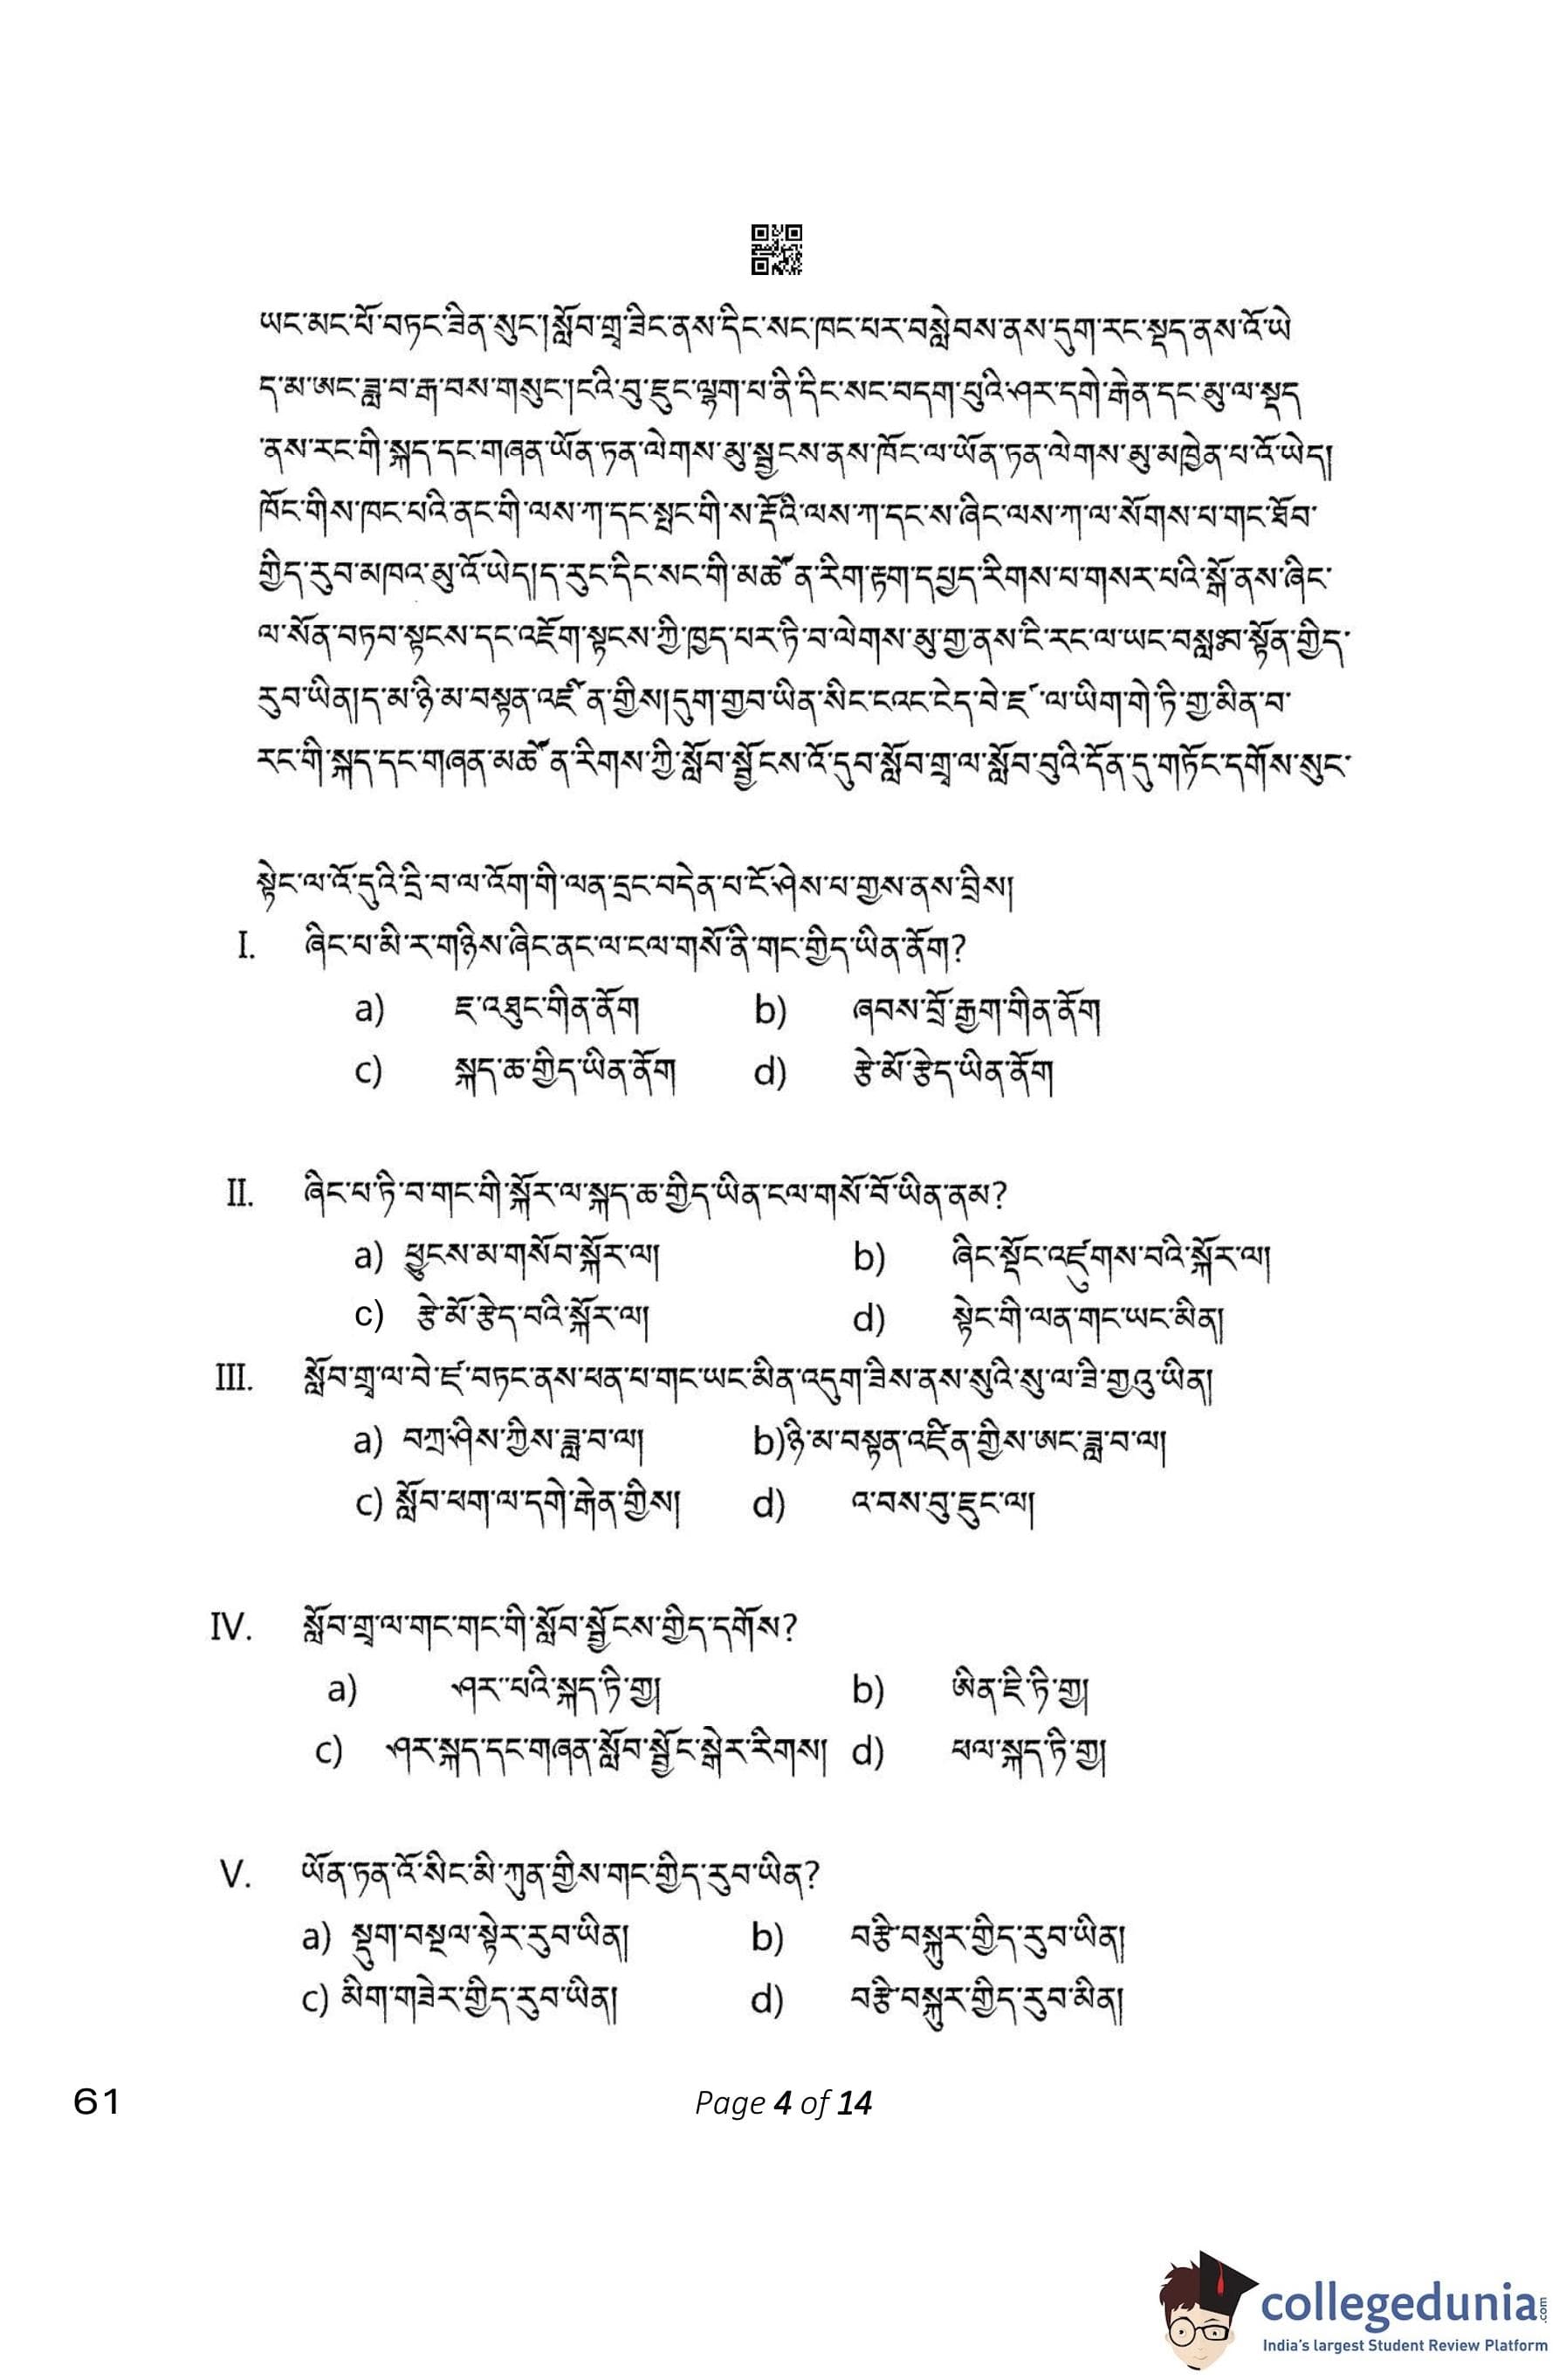 ཡང་མང་པོ་བཏང་ཟིན་སུང་།སློབ་གྲྭ་ཟིང་ནས་དིང་སང་ཁང་པར་བསླེབས་ནས་དུག་རང་སྡད་ནས་འོ་ཡེ
ད་མ་ཨང་ཟླ་བ་རྒ་བས་གསུང་།ངའི་བུ་ཇུང་ལྷག་པ་ནི་དིང་སང་བདག་པུའི་ཤར་དགེ་རྒེན་དང་མུ་ལ་སྡད
ནས་རང་གི་སྐད་དང་གཞན་ཡོན་ཏན་ལེགས་མུ་སྦྱངས་ནས་ཁོང་ལ་ཡོན་ཏན་ལེགས་མུ་མཁྱེན་པ་འོ་ཡེད།
ཁོང་གིས་ཁང་པའི་ནང་གི་ལས་ཀ་དང་སྤང་གི་ས་རྡོའི་ལས་ཀ་དང་ས་ཞིང་ལས་ཀ་ལ་སོགས་པ་གང་ཐོབ་
གྱིད་རུབ་མཁའ་མུ་འོ་ཡེད།ད་རུང་དིང་སང་གི་མཚོན་རིག་རྟག་དཔྱད་རིགས་པ་གསར་པའི་སྒོ་ནས་ཞིང་
ལ་སོན་བཏབ་སྟངས་དང་འཇོག་སྟངས་ཀྱི་ཁྱད་པར་ཏི་བ་ལེགས་མུ་གྱ་ནས་ངི་རང་ལ་ཡང་བསླབ་སྟོན་གྱིད་
རུབ་ཡིན།ད་མ་ཉི་མ་བསྟན་འཛིན་གྱིས།དུག་གྱབ་ཡིན་སིང་ངའང་ངེད་བེ་ཛ་ལ་ཡིག་གེ་ཏི་གྱ་མིན་བ་
རང་གི་སྐད་དང་གཞན་མཚོན་རིགས་ཀྱི་སློབ་སྦྱོངས་འོ་དུབ་སློབ་གྲྭ་ལ་སློབ་བུའི་དོན་དུ་གཏོང་དགོས་སུང་
སྟེང་ལ་འོ་དུའི་དྲི་བ་ལ་འོག་གི་ལན་དྲང་བདེན་པ་ངོ་ཤེས་པ་གྱས་ནས་བྲིས།
I. ཞིང་པ་མི་ར་གཉིས་ཞིང་ནང་ལ་ངལ་གསོ་ནི་གང་གྱིད་ཡིན་ནོག?
a) ཇ་འཐུང་གིན་ནོག b) ཞབས་བྲོ་རྒྱག་གིན་ནོག
c) སྐད་ཆ་གྱིད་ཡིན་ནོག d) རྩེ་མོ་རྩེད་ཡིན་ནོག
II. ཞིང་པ་ཏི་བ་གང་གི་སྐོར་ལ་སྐད་ཆ་གྱིད་ཡིན་ངལ་གསོ་བོ་ཡིན་ནམ?
a) ཕྱུངས་མ་གསོབ་སྐོར་ལ། b) ཞིང་སྡོང་འཛུགས་བའི་སྐོར་ལ།
c) རྩེ་མོ་རྩེད་བའི་སྐོར་ལ། d) སྟེང་གི་ལན་གང་ཡང་མིན།
III. སློབ་གྲྭ་ལ་བེ་ཛ་བཏང་ནས་ཕན་པ་གང་ཡང་མིན་འདུག་ཟིས་ནས་སུའི་སུ་ལ་ཟི་གྱའུ་ཡིན།
a) བཀྲ་ཤིས་ཀྱིས་ཟླ་བ་ལ། b)ཉི་མ་བསྟན་འཛིན་གྱིས་ཨང་ཟླ་བ་ལ།
c) སློབ་ཕག་ལ་དགེ་རྒེན་གྱིས། d) འ་བས་བུ་ཇུང་ལ།
IV. སློབ་གྲྭ་ལ་གང་གང་གི་སློབ་སྦྱོངས་གྱིད་དགོས?
a) ཤར་པའི་སྐད་ཏི་གྱ། b) ཨིན་ཇི་ཏི་གྱ།
c) ཤར་སྐད་དང་གཞན་སློབ་སྦྱོང་སྒེར་རིགས། d) ཕལ་སྐད་ཏི་གྱ།
V. ཡོན་ཏན་འོ་སིང་མི་ཀུན་གྱིས་གང་གྱིད་རུབ་ཡིན?
a) སྡུག་བསྔལ་སྟེར་རུབ་ཡིན། b) བརྩི་བསྐུར་གྱིད་རུབ་ཡིན།
c) མིག་གཟེར་གྱིད་རུབ་ཡིན། d) བརྩི་བསྐུར་གྱིད་རུབ་མིན།
61 Page 4 of 14
collegedunia.com
India's largest Student Review Platform